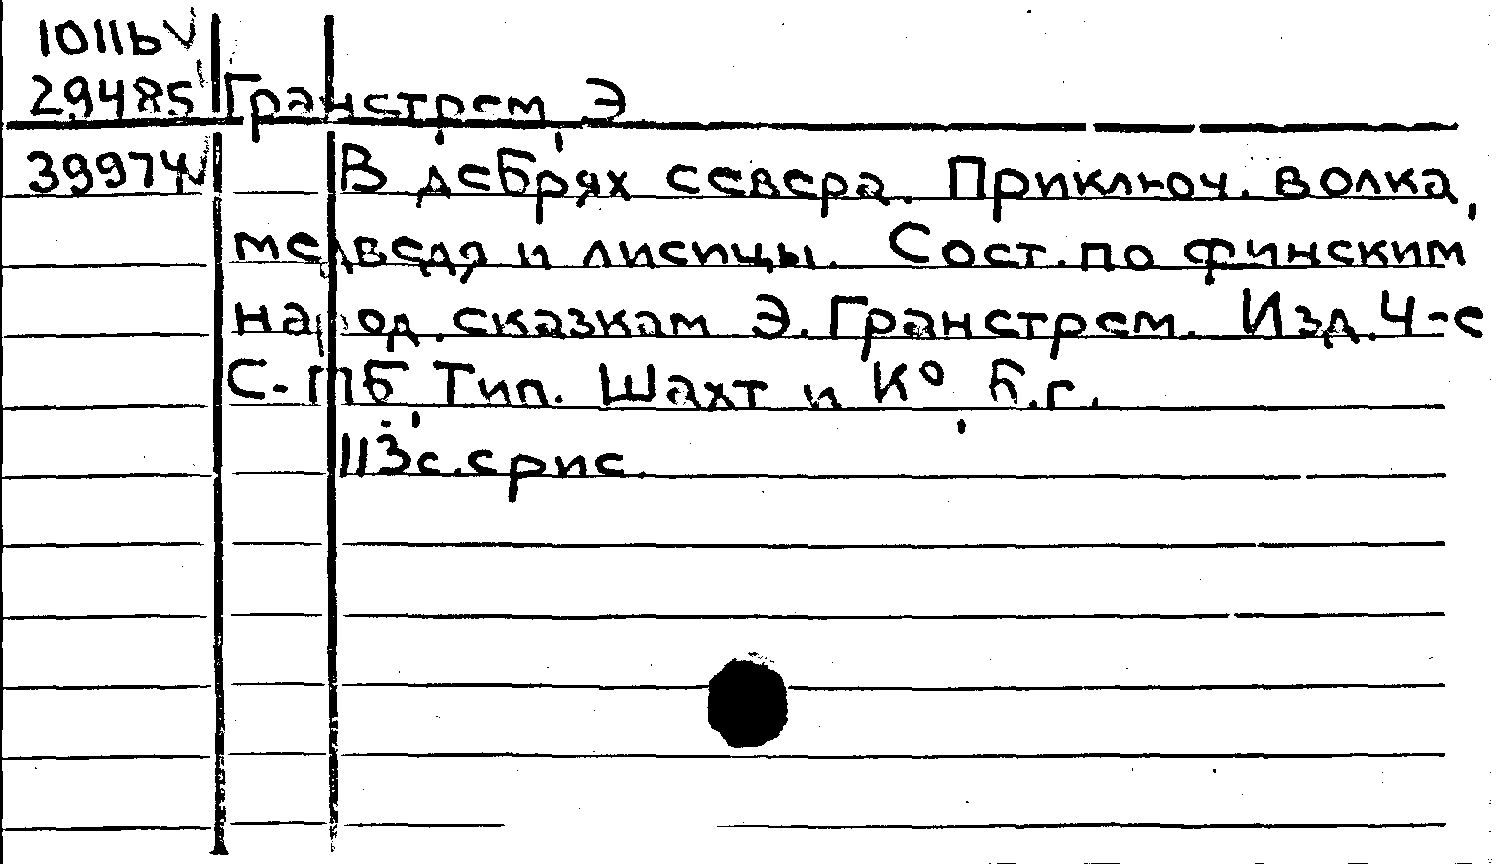 1011b
29485 Гранстрем, Э.
39974 В дебрях севера. Приключ. волка,
медведя и лисицы. Сост. по финским
народ. сказкам Э. Гранстрем. Изд. 4-е
С.-Пб, Тип. Шахт и К°, б.г.
113 с. с рис.